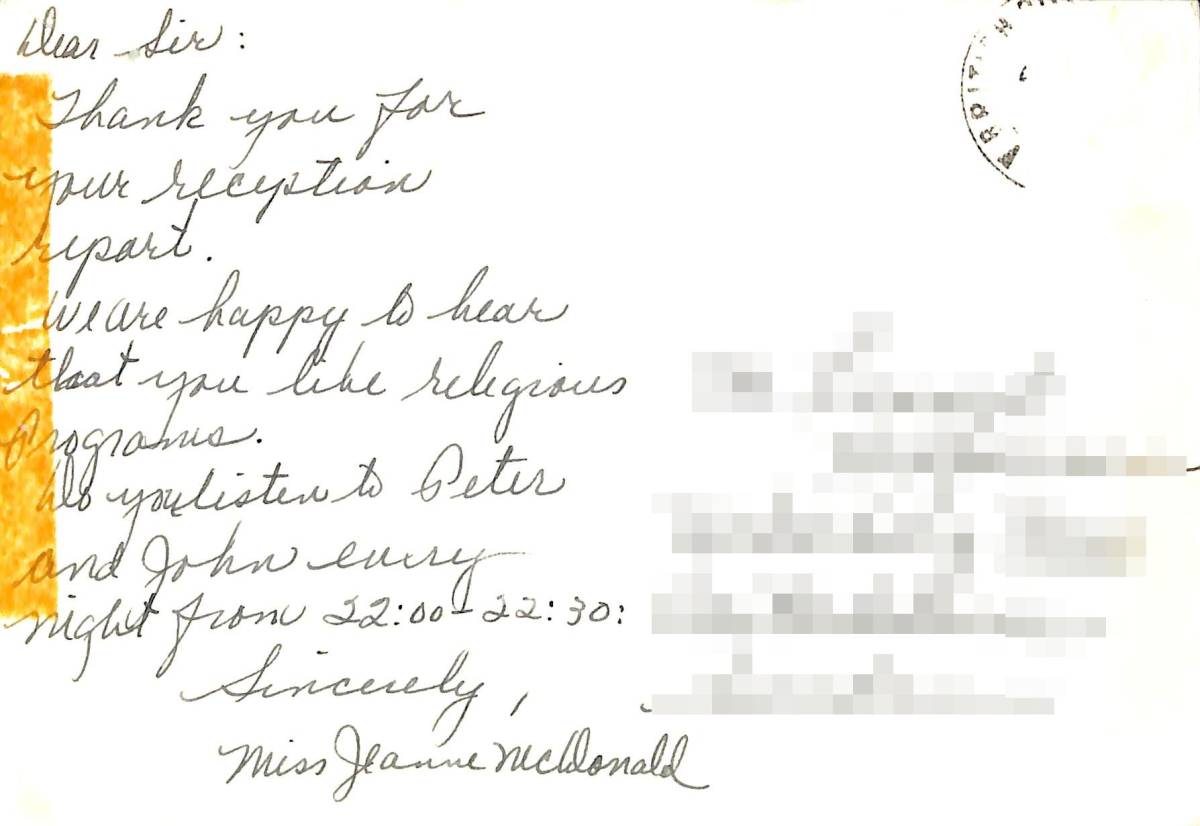 Dear Sir:
Thank you for
your reception
report.
We are happy to hear
that you like religious
Programs.
Do you listen to Peter
and John every
night from 22:00-22:30:
Sincerely,
Miss Jeanne McDonald